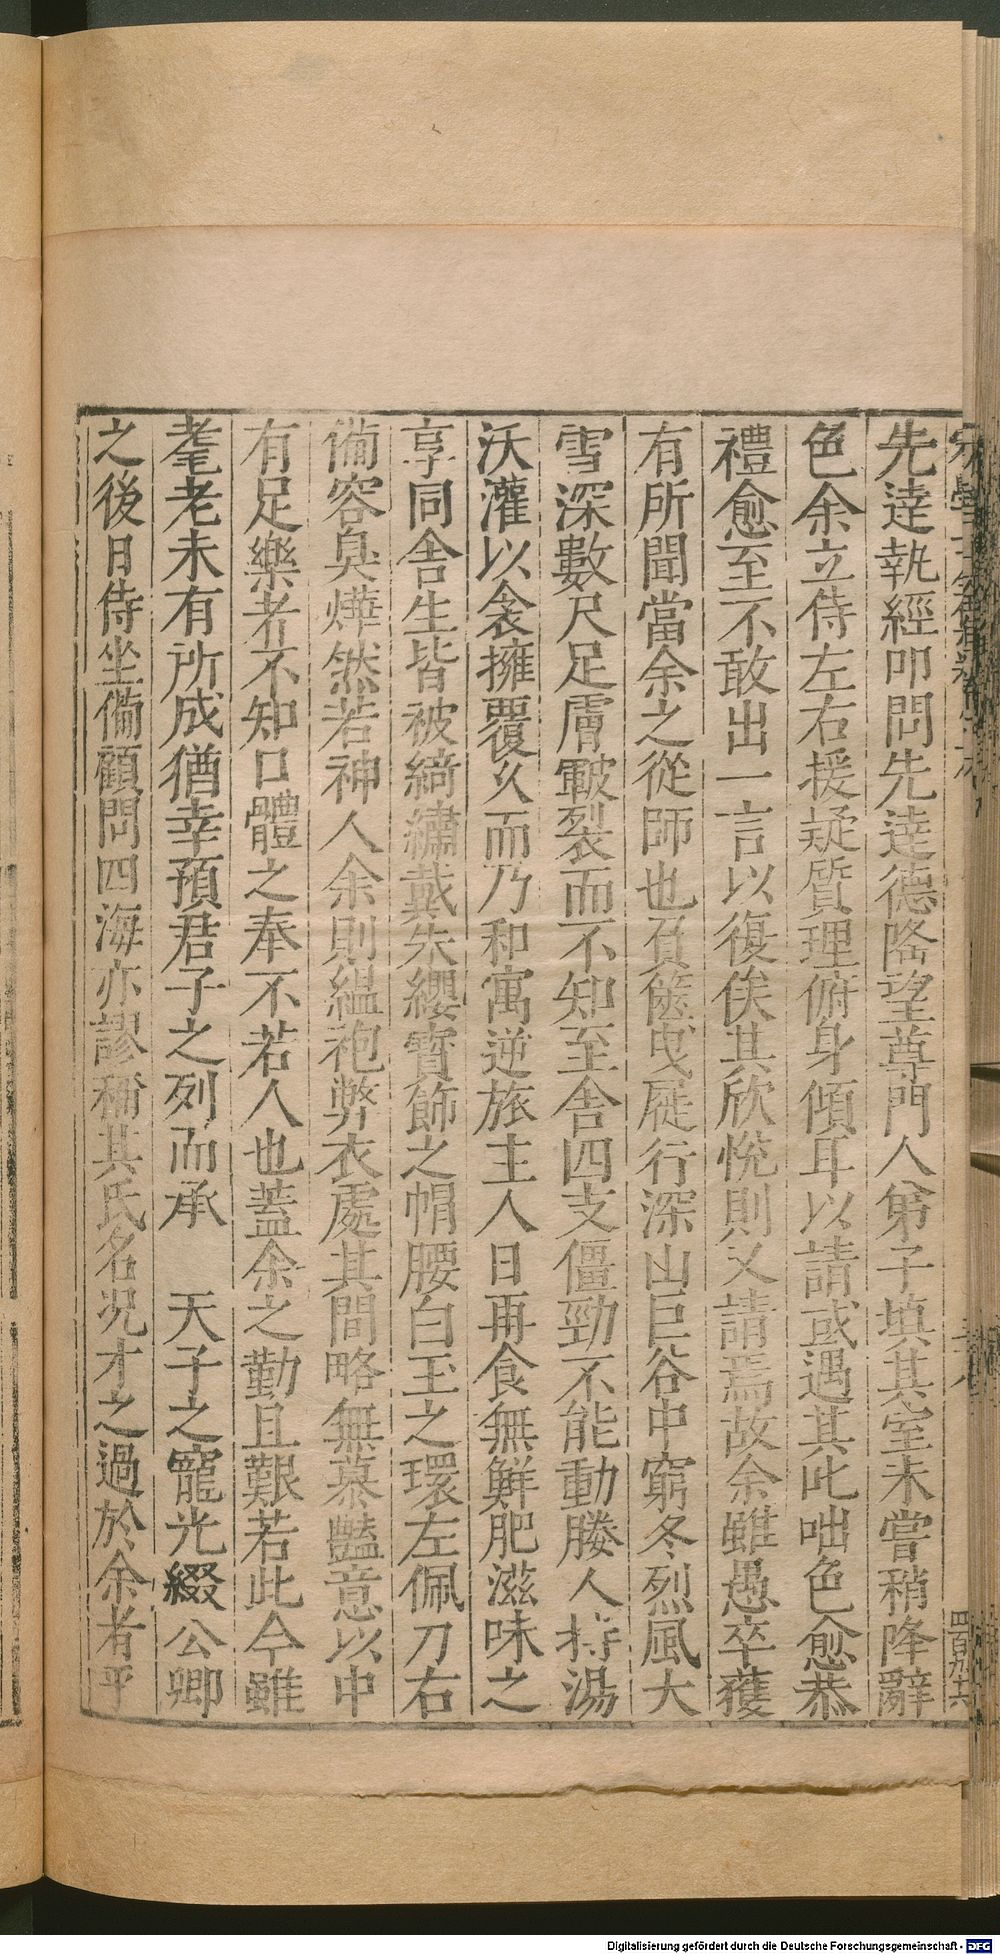 先達執經叩問先達德隆望尊門人弟子填其室未嘗稍降辭
色余立侍左右援疑質理俯身傾耳以請或遇其叱咄色愈恭
禮愈至不敢出一言以復俟其欣悅則又請焉故余雖愚卒獲
有所聞當余之從師也負篋曳屣行深山巨谷中窮冬烈風大
雪深數尺足膚皸裂而不知至舍四支僵勁不能動媵人持湯
沃灌以衾擁覆久而乃和寓逆旅主人日再食無鮮肥滋味之
享同舍生皆被綺繡戴朱纓寶飾之帽腰白玉之環左佩刀右
備容臭燁然若神人余則縕袍弊衣處其間略無慕豔意以中
有足樂者不知口體之奉不若人也蓋余之勤且艱若此今雖
耄老未有所成猶幸預君子之列而承　天子之寵光綴公卿
之後日侍坐備顧問四海亦謬稱其氏名況才之過於余者乎
Digitalisierung gefördert durch die Deutsche Forschungsgemeinschaft - DFG